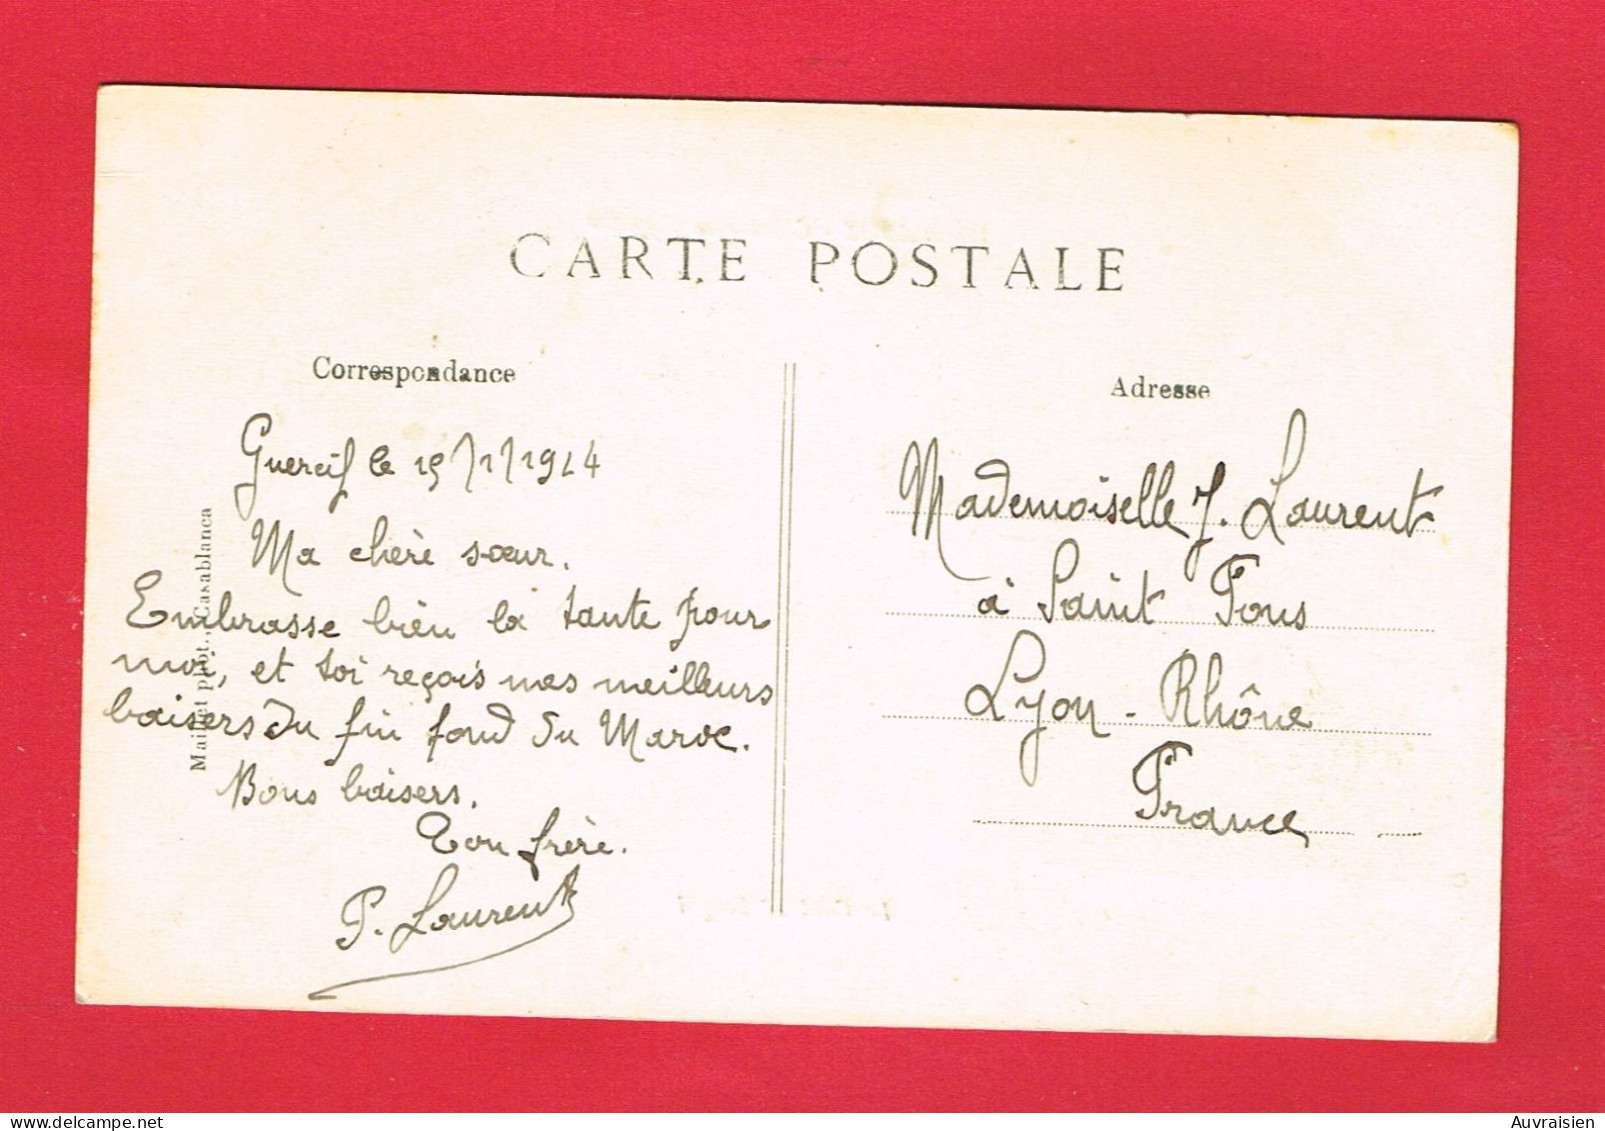 CARTE POSTALE
Correspondance
Guercif le 15/1/1924
Ma chère sœur.
Embrasse bien la tante pour
moi, et toi reçois mes meilleurs
baisers du fin fond du Maroc.
Bons baisers.
Ton frère.
P. Laurent
phot., Casablanca
Adresse
Mademoiselle J. Laurent
à Saint Fons
Lyon - Rhône
France
Auvraisien